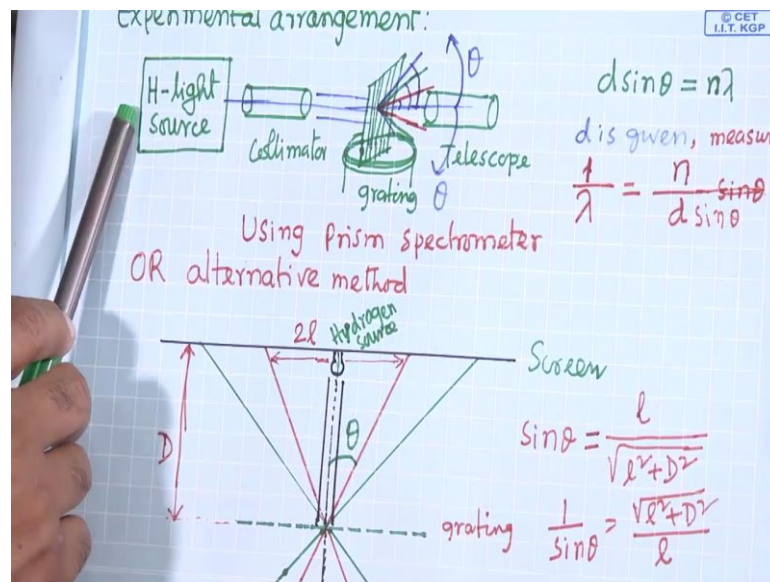 Experimental arrangement:
© CET
I.I.T. KGP
H-light
source
Collimator
grating
Telescope
θ
θ
dsinθ = nλ
d is given, measu
1/λ = n/d sinθ sinθ
Using prism spectrometer
OR alternative method
2l
Hydrogen
source
Screen
D
θ
sinθ = l/√l²+D²
grating
1/sinθ = √l²+D²/l